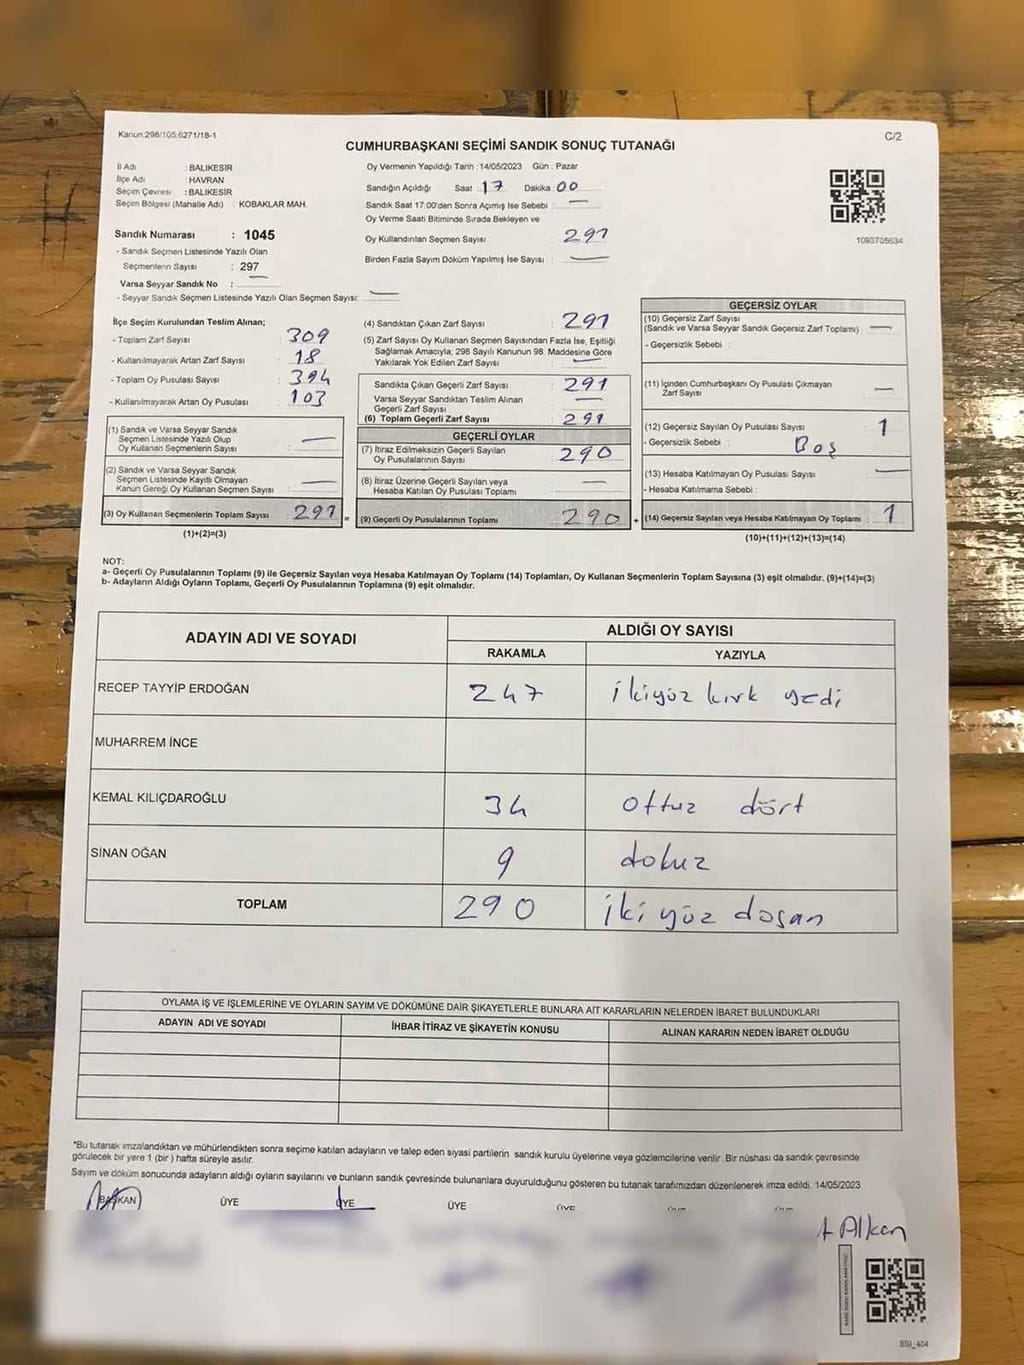 Kanun:298/105:6271/18-1
C/2
CUMHURBAŞKANI SEÇİMİ SANDIK SONUÇ TUTANAĞI
İl Adı : BALIKESİR
İlçe Adı : HAVRAN
Seçim Çevresi : BALIKESİR
Seçim Bölgesi (Mahalle Adı) : KOBAKLAR MAH.
Sandık Numarası : 1045
- Sandık Seçmen Listesinde Yazılı Olan
Seçmenlerin Sayısı : 297
Varsa Seyyar Sandık No : —
- Seyyar Sandık Seçmen Listesinde Yazılı Olan Seçmen Sayısı: —
Oy Vermenin Yapıldığı Tarih : 14/05/2023 Gün : Pazar
Sandığın Açıldığı Saat 17 Dakika : 00
Sandık Saat 17.00'den Sonra Açımış İse Sebebi : —
Oy Verme Saati Bitiminde Sırada Bekleyen ve
Oy Kullandırılan Seçmen Sayısı : 291
Birden Fazla Sayım Döküm Yapılmış İse Sayısı : —
1093705634
İlçe Seçim Kurulundan Teslim Alınan;
- Toplam Zarf Sayısı : 309
- Kullanılmayarak Artan Zarf Sayısı : 18
- Toplam Oy Pusulası Sayısı : 394
- Kullanılmayarak Artan Oy Pusulası : 103
(1) Sandık ve Varsa Seyyar Sandık
Seçmen Listesinde Yazılı Olup
Oy Kullanan Seçmenlerin Sayısı : —
(2) Sandık ve Varsa Seyyar Sandık
Seçmen Listesinde Kayıtlı Olmayan
Kanun Gereği Oy Kullanan Seçmen Sayısı : —
(3) Oy Kullanan Seçmenlerin Toplam Sayısı : 291 =
(1)+(2)=(3)
(4) Sandıktan Çıkan Zarf Sayısı : 291
(5) Zarf Sayısı Oy Kullanan Seçmen Sayısından Fazla İse, Eşitliği
Sağlamak Amacıyla, 298 Sayılı Kanunun 98. Maddesine Göre
Yakılarak Yok Edilen Zarf Sayısı : —
Sandıkta Çıkan Geçerli Zarf Sayısı : 291
Varsa Seyyar Sandıktan Teslim Alınan
Geçerli Zarf Sayısı : —
(6) Toplam Geçerli Zarf Sayısı : 291
GEÇERLİ OYLAR
(7) İtiraz Edilmeksizin Geçerli Sayılan
Oy Pusulalarının Sayısı : 290
(8) İtiraz Üzerine Geçerli Sayılan veya
Hesaba Katılan Oy Pusulası Toplamı : —
(9) Geçerli Oy Pusulalarının Toplamı : 290 +
GEÇERSİZ OYLAR
(10) Geçersiz Zarf Sayısı
(Sandık ve Varsa Seyyar Sandık Geçersiz Zarf Toplamı) : —
- Geçersizlik Sebebi :
(11) İçinden Cumhurbaşkanı Oy Pusulası Çıkmayan
Zarf Sayısı : —
(12) Geçersiz Sayılan Oy Pusulası Sayısı : 1
- Geçersizlik Sebebi : Boş
(13) Hesaba Katılmayan Oy Pusulası Sayısı : —
- Hesaba Katılmama Sebebi :
(14) Geçersiz Sayılan veya Hesaba Katılmayan Oy Toplamı : 1
(10)+(11)+(12)+(13)=(14)
NOT:
a- Geçerli Oy Pusulalarının Toplamı (9) ile Geçersiz Sayılan veya Hesaba Katılmayan Oy Toplamı (14) Toplamları, Oy Kullanan Seçmenlerin Toplam Sayısına (3) eşit olmalıdır. (9)+(14)=(3)
b- Adayların Aldığı Oyların Toplamı, Geçerli Oy Pusulalarının Toplamına (9) eşit olmalıdır.
ADAYIN ADI VE SOYADI ALDIĞI OY SAYISI
RAKAMLA YAZIYLA
RECEP TAYYİP ERDOĞAN 247 ikiyüz kırk yedi
MUHARREM İNCE
KEMAL KILIÇDAROĞLU 34 ottuz dört
SİNAN OĞAN 9 dokuz
TOPLAM 290 iki yüz doşan
OYLAMA İŞ VE İŞLEMLERİNE VE OYLARIN SAYIM VE DÖKÜMÜNE DAİR ŞİKAYETLERLE BUNLARA AİT KARARLARIN NELERDEN İBARET BULUNDUKLARI
ADAYIN ADI VE SOYADI İHBAR İTİRAZ VE ŞİKAYETİN KONUSU ALINAN KARARIN NEDEN İBARET OLDUĞU
*Bu tutanak imzalandıktan ve mühürlendikten sonra seçime katılan adayların ve talep eden siyasi partilerin sandık kurulu üyelerine veya gözlemcilerine verilir. Bir nüshası da sandık çevresinde
görülecek bir yere 1 (bir) hafta süreyle asılır.
Sayım ve döküm sonucunda adayların aldığı oyların sayılarını ve bunların sandık çevresinde bulunanlara duyurulduğunu gösteren bu tutanak tarafımızdan düzenlenerek imza edildi. 14/05/2023
BAŞKAN ÜYE ÜYE ÜYE ÜYE
Alkan
SSI_404